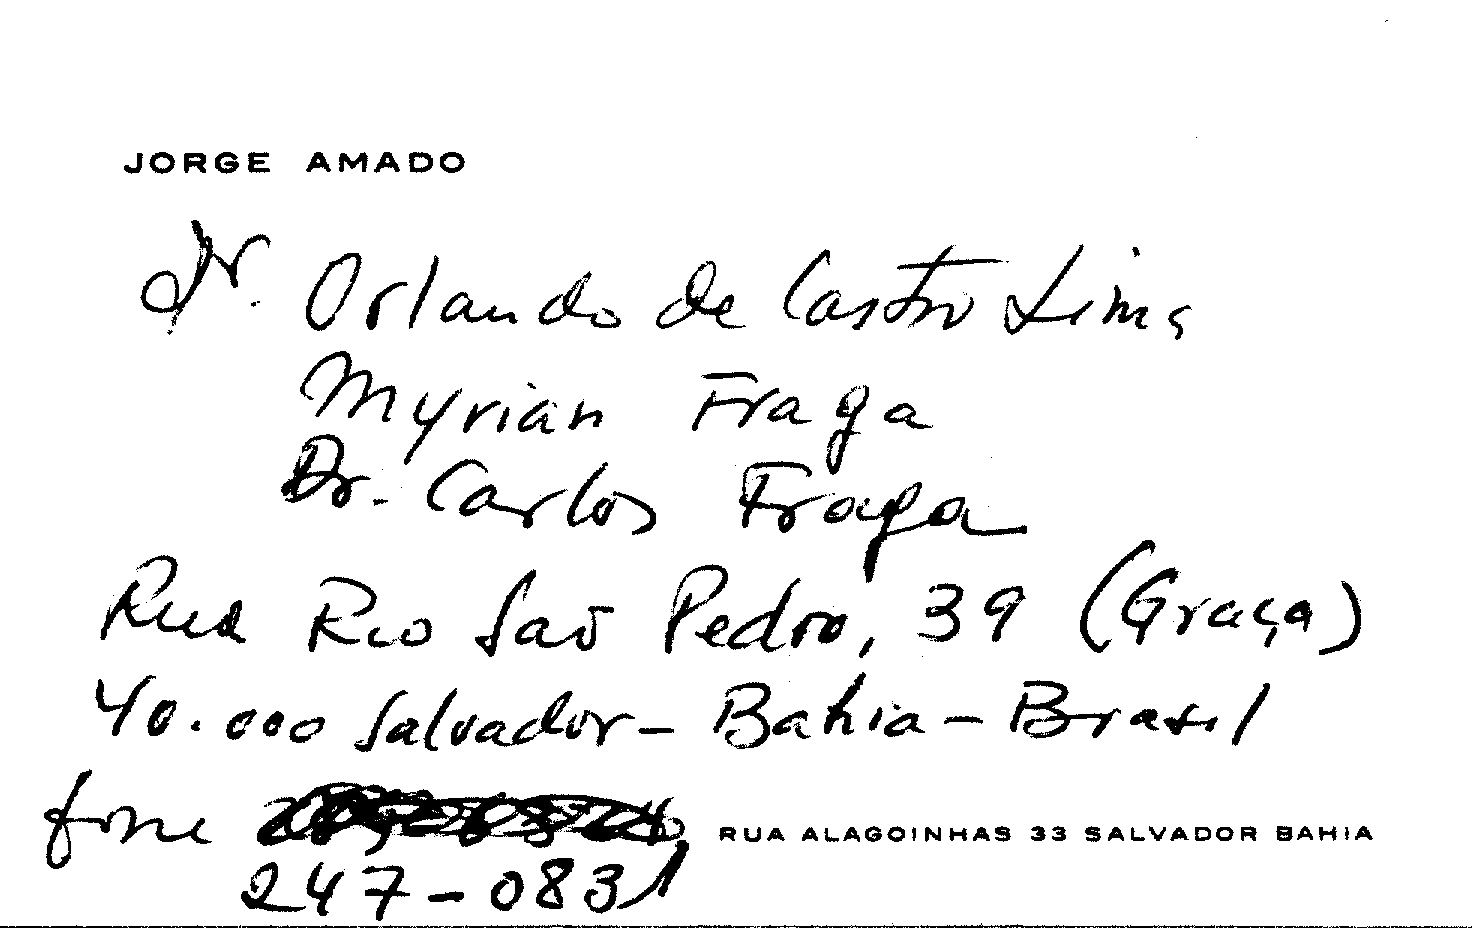 JORGE AMADO
Dr. Orlando de Castro Lima
Myrian Fraga
Dr. Carlos Fraga
Rua Rio São Pedro, 39 (Graça)
40.000 Salvador – Bahia – Brasil
fone
RUA ALAGOINHAS 33 SALVADOR BAHIA
247-0831